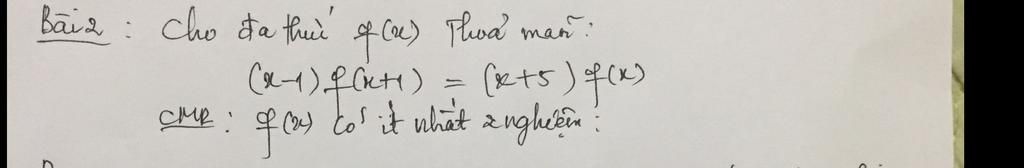 Bài 2 : Cho đa thức f(x) Thoả mãn:
(x-1) f(x+1) = (x+5) f(x)
CMR : f(x) có ít nhất 2 nghiệm :